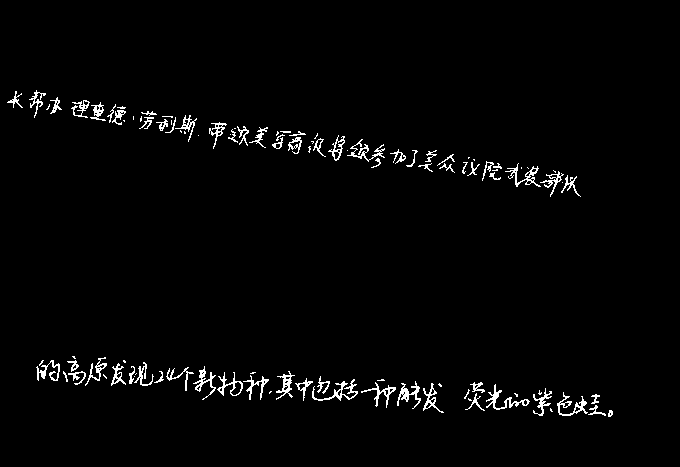 长帮办理查德·劳利斯.带领美军高级将领参加了美众议院武装部队
的高原发现24个新物种.其中包括一种能发 荧光的紫色蛙。